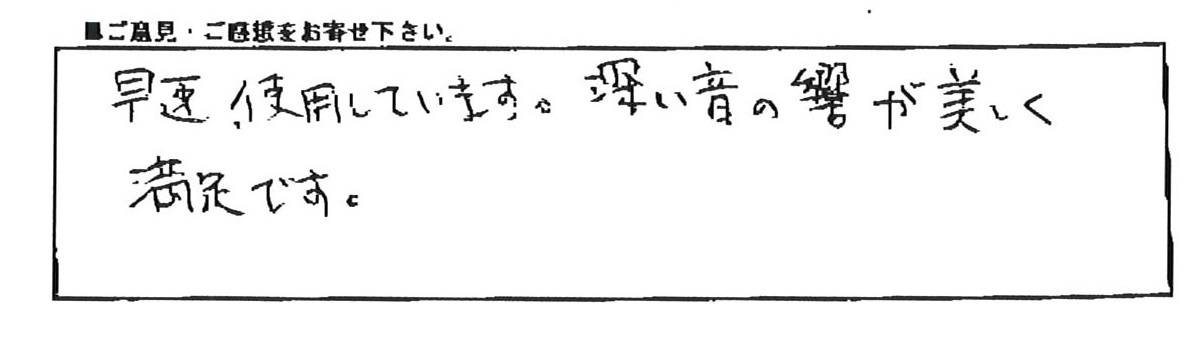 ■ご意見・ご感想をお寄せ下さい。
早速、使用しています。深い音の響が美しく
満足です。